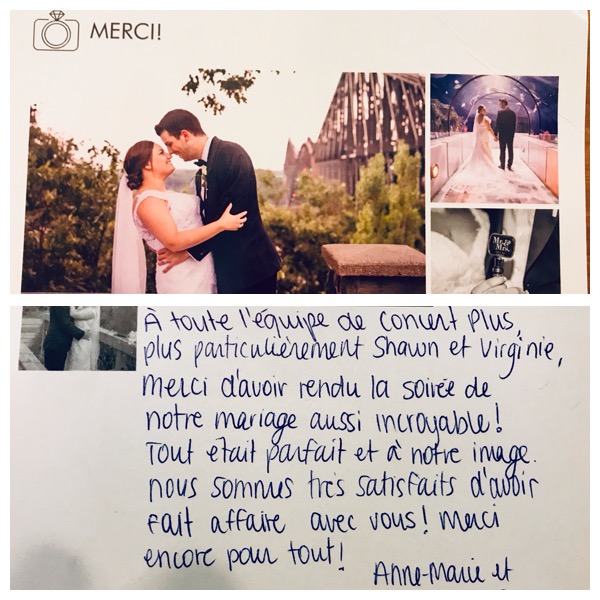 MERCI!
Mr. &
Mrs.
À toute l'équipe de Concert Plus,
plus particulièrement Shawn et Virginie,
Merci d'avoir rendu la soirée de
notre mariage aussi incroyable!
Tout était parfait et à notre image.
nous sommes très satisfaits d'avoir
fait affaire avec vous! Merci
encore pour tout!
Anne-Marie et